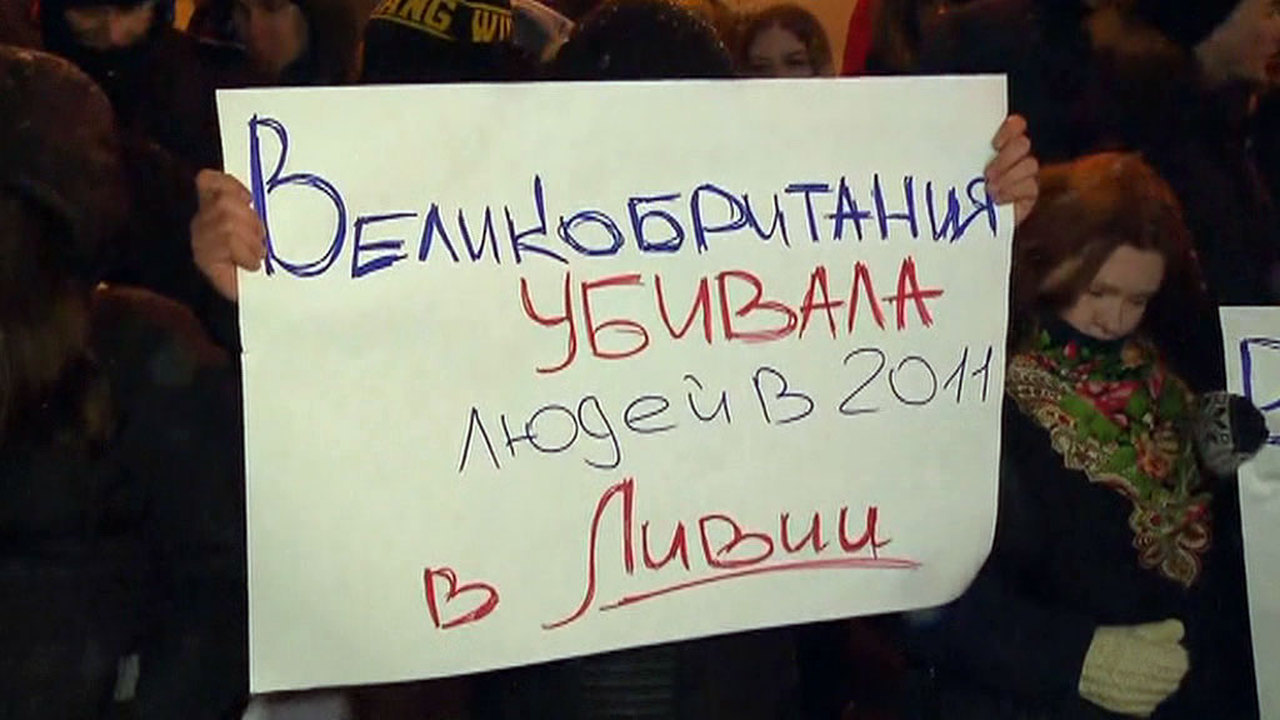 ANG WU
ВЕЛИКОБРИТАНИЯ
УБИВАЛА
людей в 2011
в Ливии